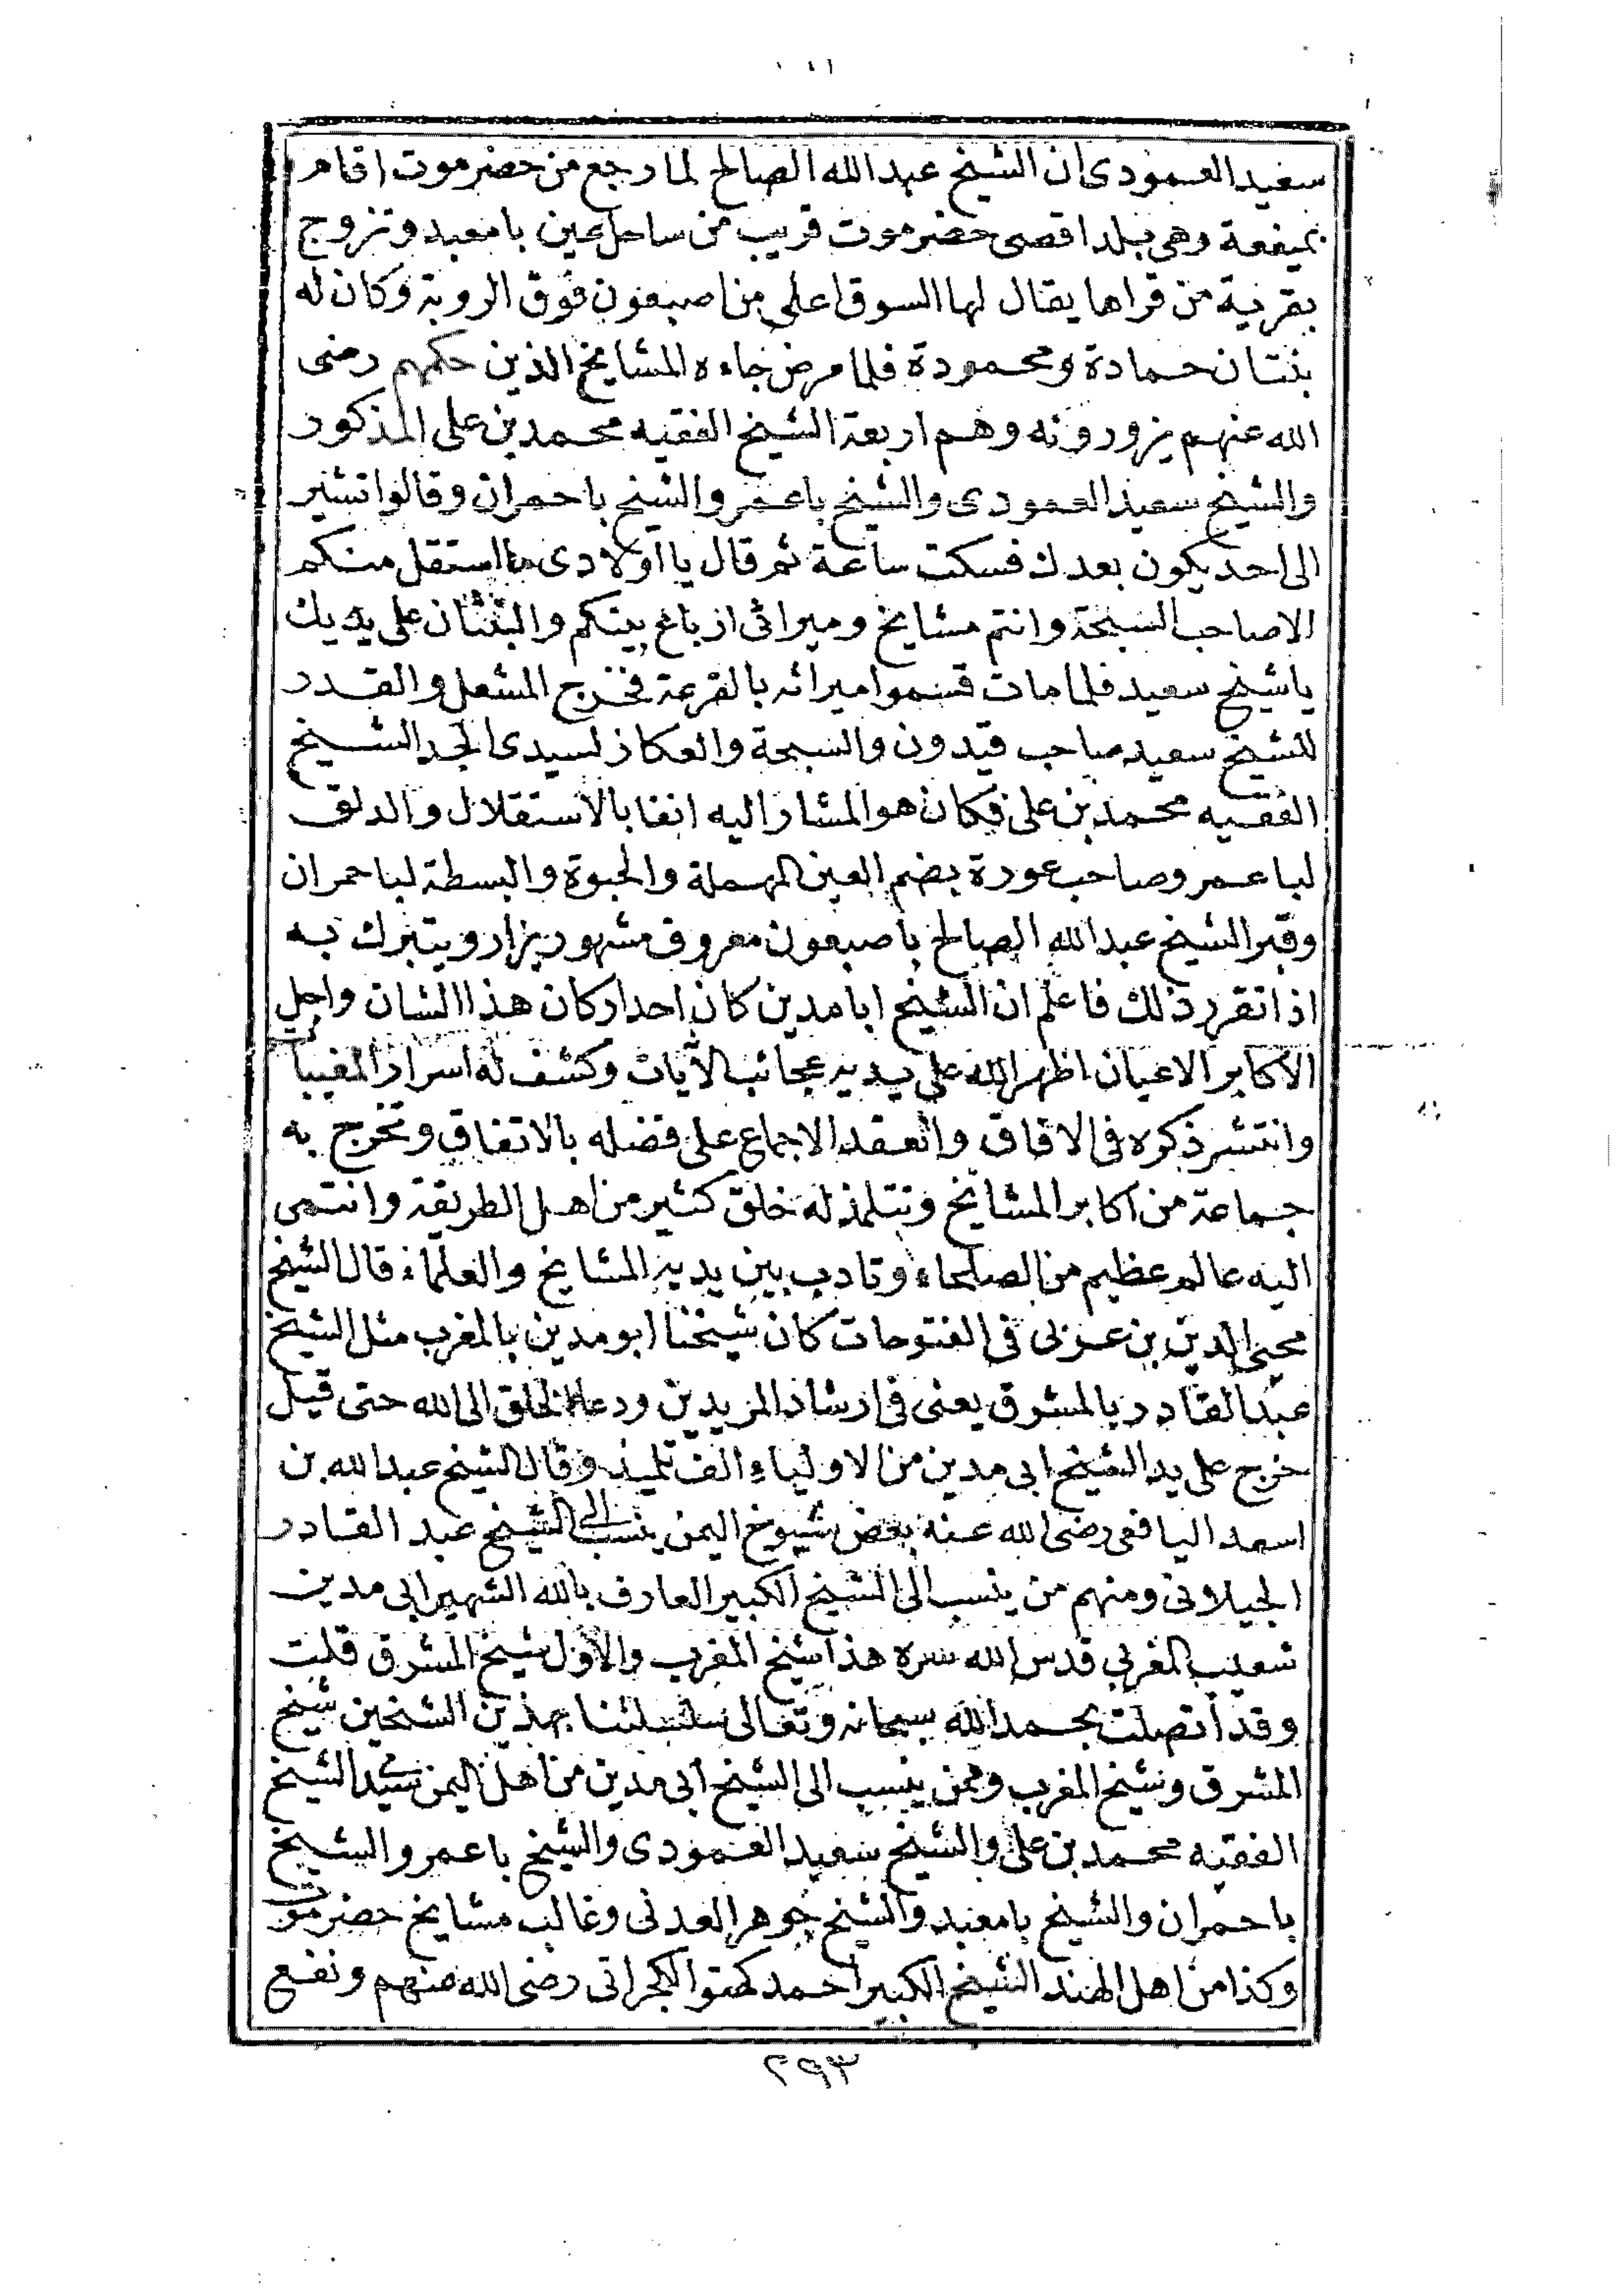 سعيد العمودى ان الشيخ عبد الله الصالح لما رجع من حضرموت اقام
بميفعة وهى بلد اقصى حضرموت قريب من ساحل عين بامعبد وتزوج
بقرية من قراها يقال لها السوق اعلى من اصبعون فوق الروبة وكان له
بنتان حمادة ومحمودة فلما مرض جاءه المشايخ الذين حكمهم رضى
الله عنهم يزورونه وهم اربعة الشيخ الفقيه محمد بن على المذكور
والشيخ سعيد العمودى والشيخ باعمر والشيخ باحمران وقالوا تشير
الى احد يكون بعدك فسكت ساعة ثم قال يا اولادى ما استقل منكم
الا صاحب السبحة وانتم مشايخ وميراثى ارباع بينكم والبنتان على يديك
ياشيخ سعيد فلما مات قسموا ميراثه بالقرعة فخرج المشعل والقدر
للشيخ سعيد صاحب قيدون والسبحة والعكاز لسيدى الجد الشيخ
الفقيه محمد بن على فكان هو المشار اليه انفا بالاستقلال والدلق
لباعمر وصاحب عورة بضم العين المهملة والحبوة والبسطة لباحمران
وقبر الشيخ عبد الله الصالح باصبعون معروف مشهور يزار ويتبرك به
اذا تقرر ذلك فاعلم ان الشيخ ابا مدين كان احد اركان هذا الشان واجل
الاكابر الاعيان اظهر الله على يديه عجائب الآيات وكشف له اسرار المغيبات
وانتشر ذكره فى الافاق وانعقد الاجماع على فضله بالاتفاق وتخرج به
جماعة من اكابر المشايخ وتتلمذ له خلق كثير من اهل الطريقة وانتمى
اليه عالم عظيم من الصلحاء وتادب بين يديه المشايخ والعلماء قال الشيخ
محيى الدين بن عربى فى الفتوحات كان شيخنا ابو مدين بالمغرب مثل الشيخ
عبد القادر بالمشرق يعنى فى ارشاد المريدين ودعاء الخلق الى الله حتى قيل
خرج على يد الشيخ ابى مدين من الاولياء الف تلميذ وقال الشيخ عبد الله بن
اسعد اليافعى رضى الله عنه بعض شيوخ اليمن ينسب الى الشيخ عبد القادر
الجيلانى ومنهم من ينسب الى الشيخ الكبير العارف بالله الشهير ابى مدين
شعيب المغربى قدس الله سره هذا شيخ المغرب والاول شيخ المشرق قلت
وقد اتصلت بحمد الله سبحانه وتعالى سلسلتنا بهذين الشيخين شيخ
المشرق وشيخ المغرب وممن ينسب الى الشيخ ابى مدين من اهل اليمن سيد الشيخ
الفقيه محمد بن على والشيخ سعيد العمودى والشيخ باعمر والشيخ
باحمران والشيخ بامعبد والشيخ جوهر العدنى وغالب مشايخ حضرموت
وكذا من اهل الهند الشيخ الكبير احمد كهتو الكجراتى رضى الله عنهم ونفع
٢٩٣